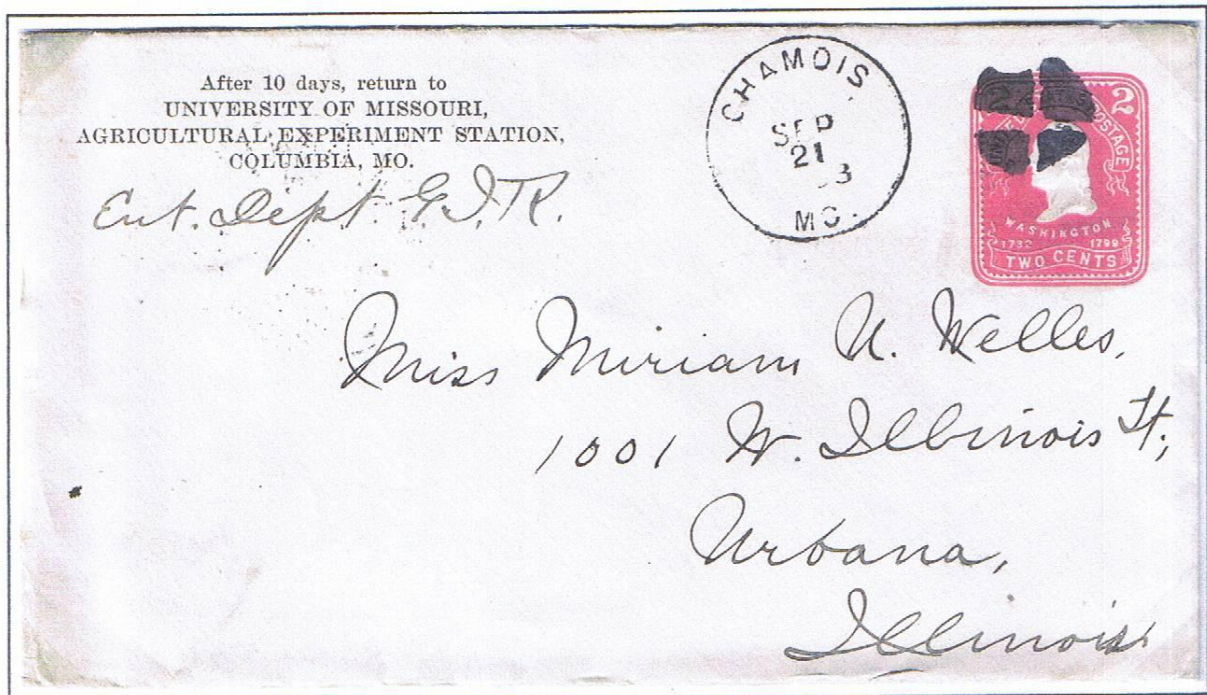 After 10 days, return to
UNIVERSITY OF MISSOURI,
AGRICULTURAL EXPERIMENT STATION,
COLUMBIA, MO.
Ent. Dept.
CHAMOIS
SEP
21
3
MO.
2
POSTAGE
WASHINGTON
1732 1799
TWO CENTS
Miss Miriam U. Welles,
1001 W. Illinois St,
Urbana,
Illinois